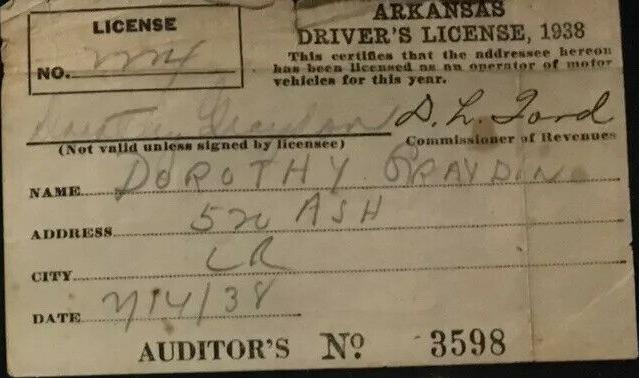 LICENSE
NO.
ARKANSAS
DRIVER'S LICENSE, 1938
This certifies that the addressee hereon
has been licensed as an operator of motor
vehicles for this year.
Dorothy
D. L. Ford
(Not valid unless signed by licensee)
Commissioner of Revenues
NAME DOROTHY
ADDRESS 520 ASH
CITY LR
DATE 7/14/38
AUDITOR'S No 3598